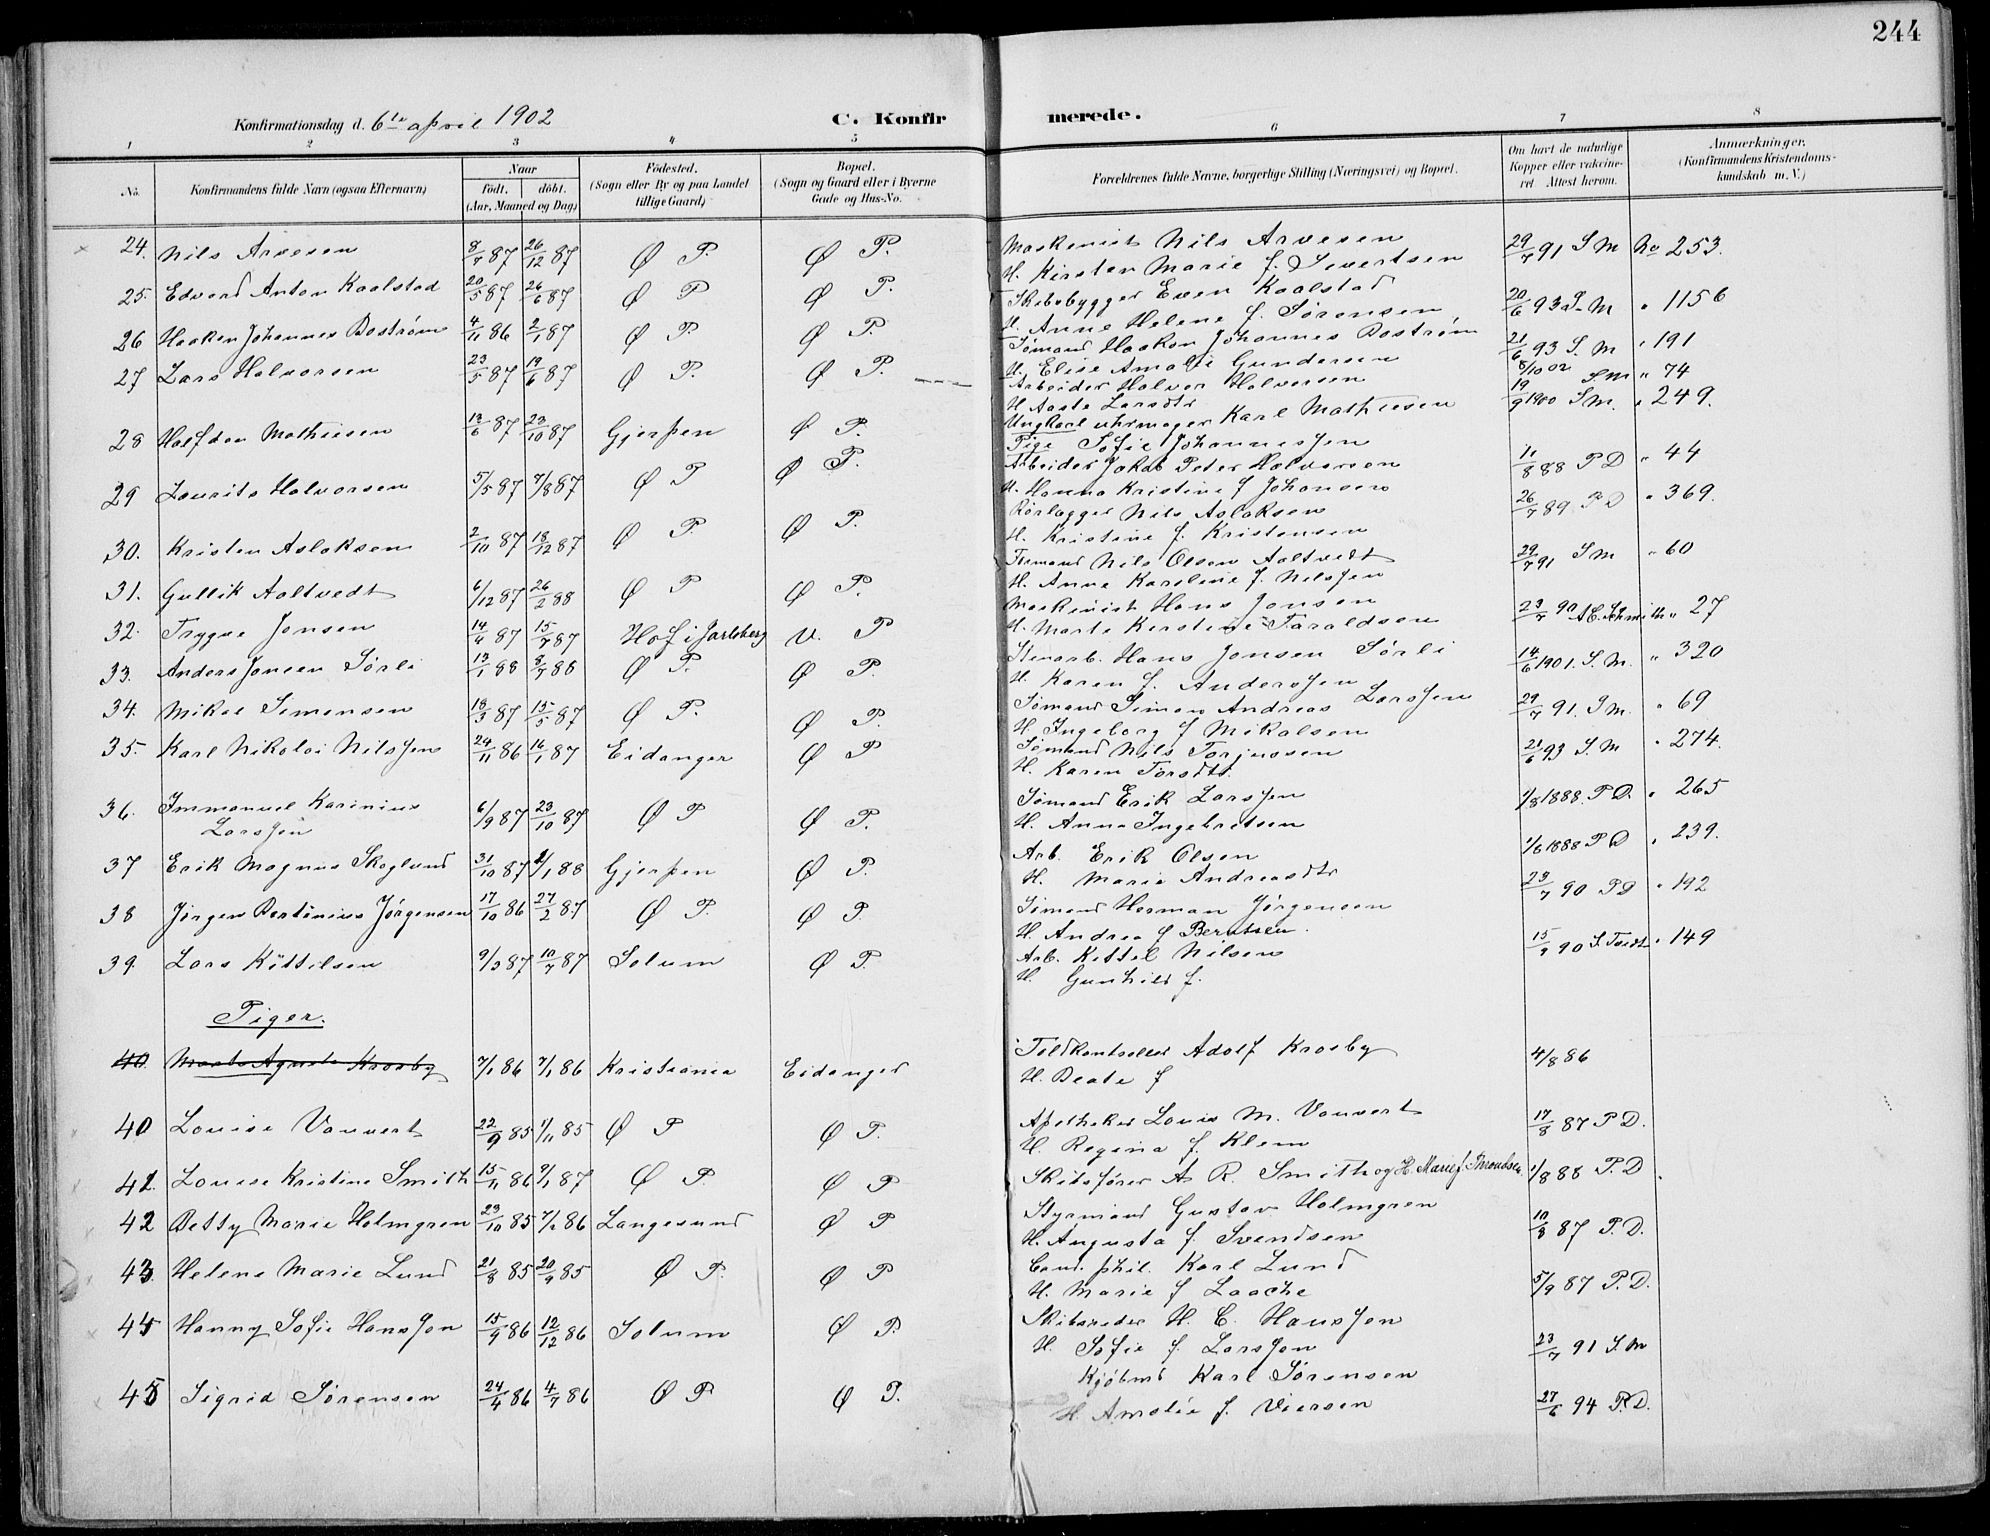 244
Konfirmationsdag d. 6te april 1902 C. Konfirmerede.
1 2 3 4 5 6 7 8
No. Konfirmandens fulde Navn (ogsaa Efternavn) Naar født. døbt. (Aar, Maaned og Dag) Födested. (Sogn eller By og paa Landet tillige Gaard) Bopæl. (Sogn og Gaard eller i Byerne Gade og Hus-No. Forældrenes fulde Navne, borgerlige Stilling (Næringsvei) og Bopæl. Om havt de naturlige Kopper eller vakcineret. Attest herom. Anmærkninger. (Konfirmandens Kristendomskundskab m. V.)
24. Nils Arvesen 8/7 87 26/12 87 Ø P. Ø P. Maskinist Nils Arvesen 29/7 91 S M No 253.
H. Kirsten Marie f. Sivertsen
25. Edvard Anton Kaalstad 20/5 87 26/6 87 Ø P Ø P. Skibsbygger Even Kaalstad 20/6 93 S. M " 1156
H. Anne Helene f. Sørensen
26 Haaken Johannes Bostrøm 4/11 86 2/1 87 Ø P. Ø P. Sømand Haakon Johannes Bostrøm 21/6 93 S. M " 191
H. Elise Amalie Gundersen
27 Lars Halvorsen 23/5 87 19/6 87 Ø P. Ø P. Arbeider Halvor Halvorsen 8/10 02 S. M " 74
H. Aaste Larsdtr
28 Halfdan Mathiesen 13/6 87 23/10 87 Gjerpen Ø P. Ungkarl uhrmager Karl Mathiesen 19/9 1900 S M. " 249.
Pige Sofie Johannesjen
29 Laurits Halvorsen 5/5 87 7/8 87 Ø P Ø P. Arbeider Jakob Peter Halvorsen 11/8 88 P D " 44
H. Hanna Kristine f Johansen
30. Kristen Aslaksen 2/10 87 18/12 87 Ø P. Ø P. Rørlægger Nils Aslaksen 26/7 89 P D " 369.
H. Kristine f. Kristensen
31. Gullik Aaltvedt 6/12 87 26/2 88 Ø P Ø P. Nils Olsen Aaltvedt 29/7 91 S M " 60
H. Anne Karoline f. Nilssen
32. Trygve Jonsen 14/4 87 15/7 87 Hof i Jarlsberg V. P Maskinist Hans Jonsen 23/7 90 " 27
H. Marte Kirstine Taraldsen
33. Anders Jonsen Sørli 13/1 88 8/7 88 Ø P. Ø P. Stenarb. Hans Jonsen Sørli 14/6 1901. S. M. " 320
H. Karen f. Anderssen
34. Mikal Simonsen 18/3 87 15/5 87 Ø P. Ø P. Sømand Simon Andreas Larssen 29/7 91. S M. " 69
H. Ingeborg f Mikalsen
35. Karl Nikolai Nilssen 24/11 86 16/1 87 Eidanger Ø P Sømand Nils Torjussen 21/6 93 S. M " 274.
H. Karen Torsdtr.
36. Immanuel Karinius Larssen 6/9 87 23/10 87 Ø P Ø P. Sømand Erik Larssen 1/8 1888. P D. " 265
H. Anna Ingebretsen
37 Erik Magnus Skoglund 31/10 87 1/1 88 Gjerpen Ø P. Arb. Erik Olsen 1/6 1888 P D " 239.
H. Marie Andreasdtr
38 Jørgen Bertinius Jørgensen 17/10 86 27/2 87 Ø P. Ø P. Sømand Herman Jørgensen 23/7 90 P D " 192
H. Andrea f Berntsen.
39. Lars Kittilsen 9/3 87 10/7 87 Solum Ø P. Arb. Kettel Nilsen 15/9 90 S. Tvedt " 149
H. Gunhild f.
Piger.
40 Marta Agnete Krosby 7/1 86 7/1 86 Kristiania Eidanger Toldkontrollør Adolf Krosby 4/8 86
H. Beate f
40 Louise Vauvert 22/9 85 1/11 85 Ø P Ø P. Apotheker Louis M. Vauvert 17/8 87 P D.
H. Regina f. Klem
41. Louise Kristine Smith 15/11 86 9/1 87 Ø P. Ø P Skibsfører A R. Smith og H. Marie f. Throndsen 1/8 88 P. D
42 Betty Marie Holmgren 23/10 85 7/2 86 Langesund Ø P Styrmand Gustav Holmgren 10/8 87 P. D.
H. Augusta f. Svendsen
43. Helene Marie Lund 21/8 85 20/9 85 Ø P. Ø P Cand. phil. Karl Lund 5/9 87 P. D.
H. Marie f Laache
44 Hanny Sofie Hanssen 15/9 86 12/12 86 Solum Ø P. Skibsreder H. C. Hanssen 23/7 91 S. M
H. Sofie f. Larssen
45 Sigrid Sørensen 24/4 86 4/7 86 Ø P Ø P. Kjøbmd Karl Sørensen 27/6 94 P. D.
H. Amalie f. Viersen